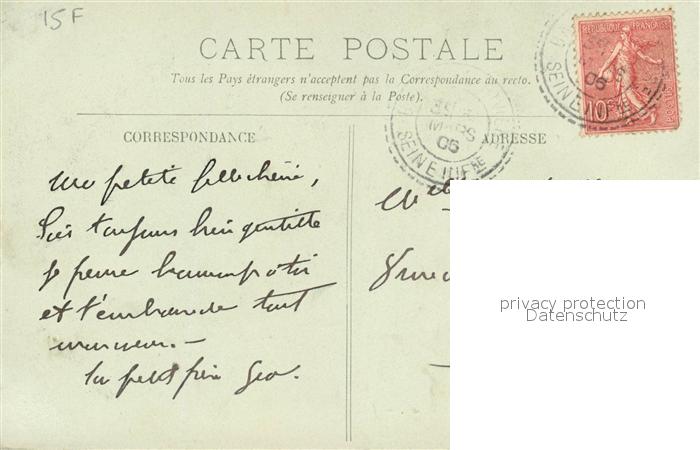 15F
CARTE POSTALE
Tous les Pays étrangers n'acceptent pas la Correspondance au recto.
(Se renseigner à la Poste).
REPUBLIQUE FRANÇAISE
10c
SEINE INFRE
MARS
06
SEINE INFRE
CORRESPONDANCE
ADRESSE
Ma petite fille chérie,
Sois toujours bien gentille
Je pense beaucoup à toi
et t'embrasse de tout
mon cœur. —
Ton petit père Geo.
Melle
privacy protection
Datenschutz